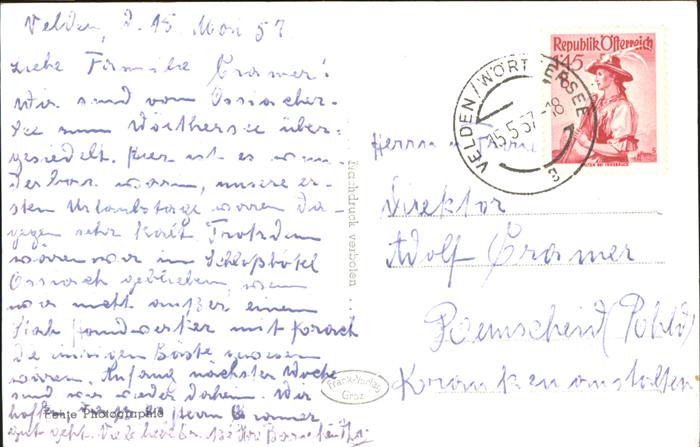 Velden, d. 15 Mai 57
Liebe Familie Cramer!
Wir sind vom Ossiacher-
See zum Wörthersee über-
gesiedelt. Hier ist es wun-
derbar warm, unsere er-
sten Urlaubstage waren da-
gegen sehr kalt. Trotzdem
wären wir im Schloßhotel
Ossiach geblieben, wenn
wir nicht außer einem
Handwerker mit Krach
die einzigen Gäste gewesen
wären. Anfang nächster Woche
sind wir wieder daheim. Wir
hoffen, Herrn Cramer
gut geht. Viele
Fenje Photographie
Nachdruck verboten
Frank-Verlag
Graz
Republik Österreich
1.45
VELDEN/WÖRTHERSEE
15.5.57-18
Herrn u. Frau
Direktor
Adolf Cramer
Remscheid (Rhld)
Krankenanstalten